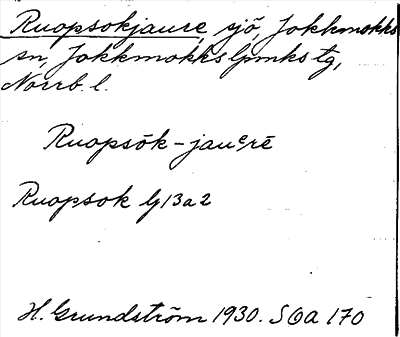 Ruopsokjaure, sjö, Jokkmokks
sn, Jokkmokks lpmks tg,
Norrb. l.
Ruopsōk-jauᵉrē
Ruopsok lg 13a2
H. Grundström 1930. SOA 170